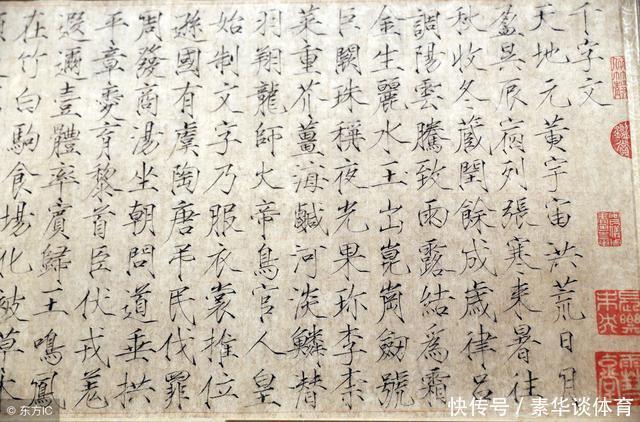 千字文
天地元黃宇宙洪荒日月
盈昃辰宿列張寒來暑往
秋收冬藏閏餘成歲律呂
調陽雲騰致雨露結為霜
金生麗水玉出崑崗劍號
巨闕珠稱夜光果珍李柰
菜重芥薑海鹹河淡鱗替
羽翔龍師火帝鳥官人皇
始制文字乃服衣裳推位
遜國有虞陶唐弔民伐罪
周發商湯坐朝問道垂拱
平章愛育黎首臣伏戎羌
遐邇壹體率賓歸王鳴鳳
在竹白駒食場化被草木
© 东方IC
快传号/素华谈体育